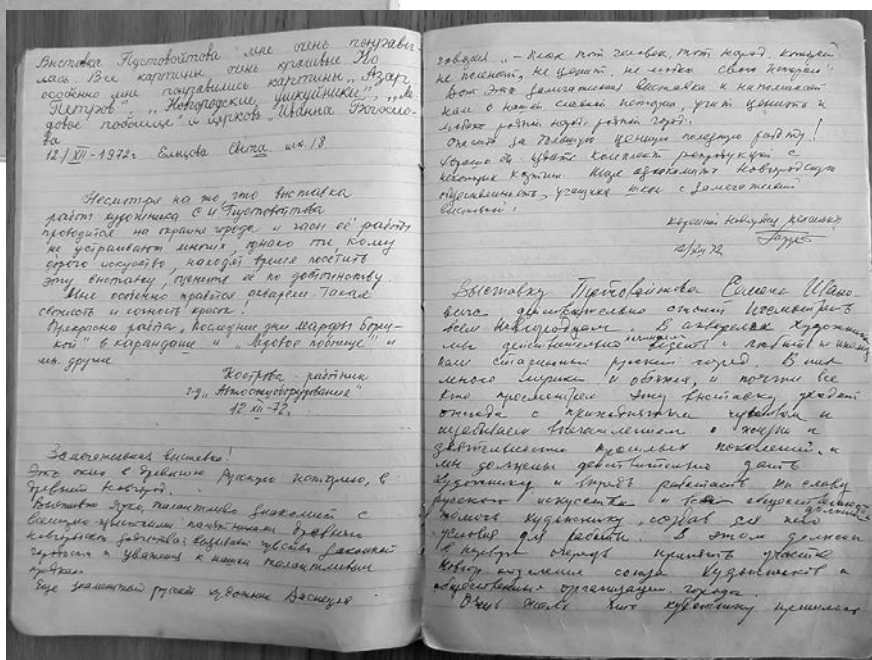 Выставка Пустовойтова мне очень понрави-
лась. Все картины очень красивые. Но
особенно мне понравились картины „Азарт
Петров", „Новгородские ушкуйники", „Ле-
довое побоище" и церковь Иоанна Богосло-
ва
12/XII-1972г. Елисова шк. 18
Несмотря на то, что выставка
работ художника С И Пустовойтова
проводится на окраине города и часы её работы
не устраивают многих, однако те кому
дорого искусство, находят время посетить
эту выставку, оценить её по достоинству.
Мне особенно нравятся акварели. Такая
свежесть и сочность красок.
Прекрасна работа „Последние дни Марфы Борец-
кой" в карандаше и „Ледовое побоище" и
мн. другие
Кострова - работник
з-д „Автоспецоборудование"
12 XII-72.
Замечательная выставка!
Это окно в древнюю Русскую историю, в
древний Новгород.
Выставка ярко, талантливо знакомит с
памятниками древнего
Новгородского зодчества; вызывает чувство законной
гордости и уважения к нашим талантливым
предкам.
Еще знаменитый русский художник Васнецов
говорил „- Плох тот человек, тот народ, который
не помнит, не ценит, не любит своей истории".
Вот эта замечательная выставка и напоминает
нам о нашей славной истории, учит ценить и
любить родной народ, родной город.
Спасибо за большую ценную полезную работу!
Хорошо бы издать комплект репродукций с
некоторых картин. Шире ознакомить Новгородскую
общественность, учащихся школ с замечательной
выставкой.
коренной Новгородец
12/XII 72
Выставку Пустовойтова Семена Ивано-
вича действительно стоит посмотреть
всем Новгородцам. В акварелях художника
мы действительно начинаем видеть и любить
наш старинный русский город. В них
много лирики и обаяния, и почти все
кто просмотрел эту выставку уходят
отсюда с приподнятым чувством и
впечатлением о жизни и
деятельности прошлых поколений, и
мы должны действительно дать
художнику и впредь работать на славу
русского искусства и вся общественность
должна помочь художнику, создав для него
условия для работы. В этом должны
в первую очередь принять участие
Новгор. отделения союза художников и
общественные организации города.
Очень жаль что художнику пришлось